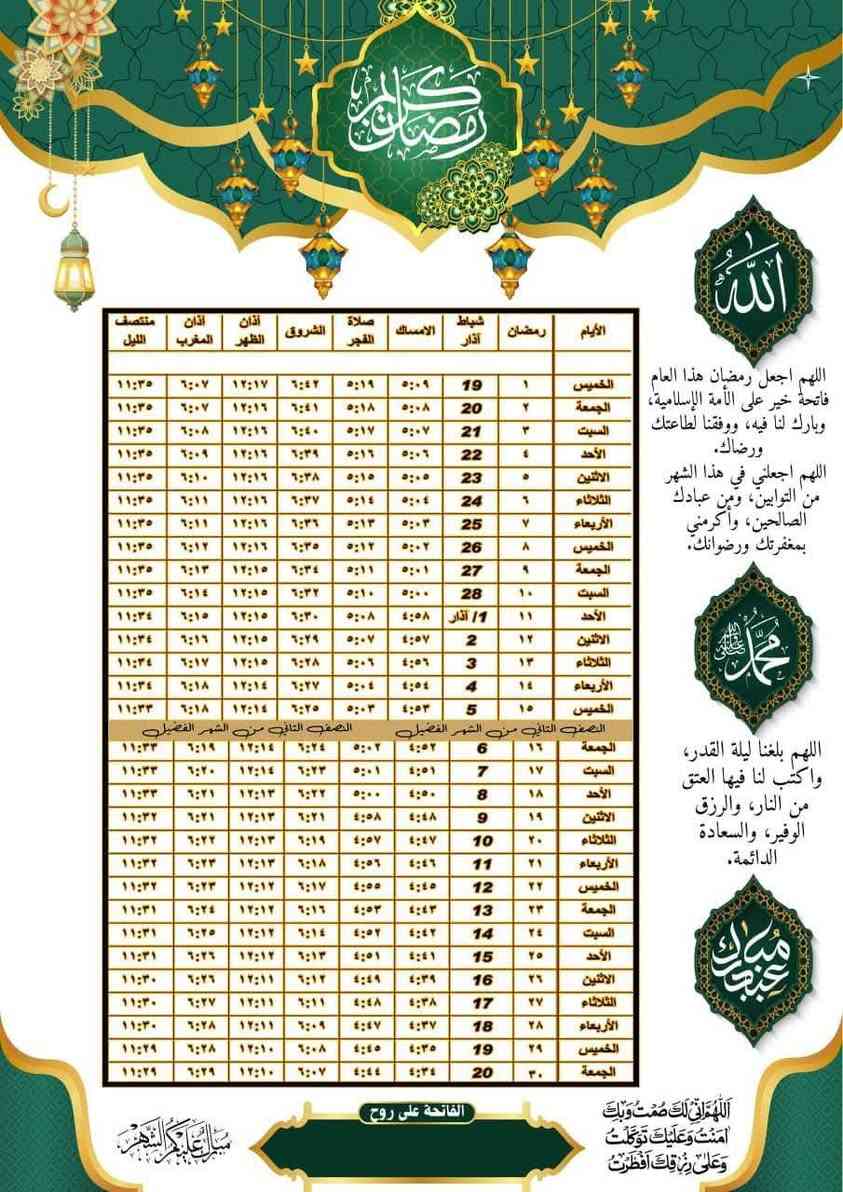 رمضان كريم
الله
اللهم اجعل رمضان هذا العام
فاتحة خير على الأمة الإسلامية،
وبارك لنا فيه، ووفقنا لطاعتك
ورضاك.
اللهم اجعلني في هذا الشهر
من التوابين، ومن عبادك
الصالحين، وأكرمني
بمغفرتك ورضوانك.
محمد ﷺ
اللهم بلغنا ليلة القدر،
واكتب لنا فيها العتق
من النار، والرزق
الوفير، والسعادة
الدائمة.
عيد مبارك
الأيام رمضان شباط آذار الامساك صلاة الفجر الشروق أذان الظهر أذان المغرب منتصف الليل
الخميس ١ 19 ٥:٠٩ ٥:١٩ ٦:٤٢ ١٢:١٧ ٦:٠٧ ١١:٣٥
الجمعة ٢ 20 ٥:٠٨ ٥:١٨ ٦:٤١ ١٢:١٦ ٦:٠٧ ١١:٣٥
السبت ٣ 21 ٥:٠٧ ٥:١٧ ٦:٤٠ ١٢:١٦ ٦:٠٨ ١١:٣٥
الأحد ٤ 22 ٥:٠٦ ٥:١٦ ٦:٣٩ ١٢:١٦ ٦:٠٩ ١١:٣٥
الاثنين ٥ 23 ٥:٠٥ ٥:١٥ ٦:٣٨ ١٢:١٦ ٦:١٠ ١١:٣٥
الثلاثاء ٦ 24 ٥:٠٤ ٥:١٤ ٦:٣٧ ١٢:١٦ ٦:١١ ١١:٣٥
الأربعاء ٧ 25 ٥:٠٣ ٥:١٣ ٦:٣٦ ١٢:١٦ ٦:١١ ١١:٣٥
الخميس ٨ 26 ٥:٠٢ ٥:١٢ ٦:٣٥ ١٢:١٦ ٦:١٢ ١١:٣٥
الجمعة ٩ 27 ٥:٠١ ٥:١١ ٦:٣٤ ١٢:١٥ ٦:١٣ ١١:٣٥
السبت ١٠ 28 ٥:٠٠ ٥:١٠ ٦:٣٢ ١٢:١٥ ٦:١٤ ١١:٣٥
الأحد ١١ 1/ آذار ٤:٥٨ ٥:٠٨ ٦:٣٠ ١٢:١٥ ٦:١٥ ١١:٣٤
الاثنين ١٢ 2 ٤:٥٧ ٥:٠٧ ٦:٢٩ ١٢:١٥ ٦:١٦ ١١:٣٤
الثلاثاء ١٣ 3 ٤:٥٦ ٥:٠٦ ٦:٢٨ ١٢:١٥ ٦:١٧ ١١:٣٤
الأربعاء ١٤ 4 ٤:٥٤ ٥:٠٤ ٦:٢٧ ١٢:١٤ ٦:١٨ ١١:٣٤
الخميس ١٥ 5 ٤:٥٣ ٥:٠٣ ٦:٢٥ ١٢:١٤ ٦:١٨ ١١:٣٣
النصف الثاني من الشهر الفضيل النصف الثاني من الشهر الفضيل
الجمعة ١٦ 6 ٤:٥٢ ٥:٠٢ ٦:٢٤ ١٢:١٤ ٦:١٩ ١١:٣٣
السبت ١٧ 7 ٤:٥١ ٥:٠١ ٦:٢٣ ١٢:١٤ ٦:٢٠ ١١:٣٣
الأحد ١٨ 8 ٤:٥٠ ٥:٠٠ ٦:٢٢ ١٢:١٣ ٦:٢١ ١١:٣٣
الاثنين ١٩ 9 ٤:٤٨ ٤:٥٨ ٦:٢١ ١٢:١٣ ٦:٢١ ١١:٣٢
الثلاثاء ٢٠ 10 ٤:٤٧ ٤:٥٧ ٦:١٩ ١٢:١٣ ٦:٢٢ ١١:٣٢
الأربعاء ٢١ 11 ٤:٤٦ ٤:٥٦ ٦:١٨ ١٢:١٣ ٦:٢٣ ١١:٣٢
الخميس ٢٢ 12 ٤:٤٥ ٤:٥٥ ٦:١٧ ١٢:١٢ ٦:٢٣ ١١:٣٢
الجمعة ٢٣ 13 ٤:٤٣ ٤:٥٣ ٦:١٦ ١٢:١٢ ٦:٢٤ ١١:٣١
السبت ٢٤ 14 ٤:٤٢ ٤:٥٢ ٦:١٤ ١٢:١٢ ٦:٢٥ ١١:٣١
الأحد ٢٥ 15 ٤:٤١ ٤:٥١ ٦:١٣ ١٢:١٢ ٦:٢٦ ١١:٣١
الاثنين ٢٦ 16 ٤:٣٩ ٤:٤٩ ٦:١٢ ١٢:١١ ٦:٢٦ ١١:٣٠
الثلاثاء ٢٧ 17 ٤:٣٨ ٤:٤٨ ٦:١١ ١٢:١١ ٦:٢٧ ١١:٣٠
الأربعاء ٢٨ 18 ٤:٣٧ ٤:٤٧ ٦:٠٩ ١٢:١١ ٦:٢٨ ١١:٣٠
الخميس ٢٩ 19 ٤:٣٥ ٤:٤٥ ٦:٠٨ ١٢:١٠ ٦:٢٨ ١١:٢٩
الجمعة ٣٠ 20 ٤:٣٤ ٤:٤٤ ٦:٠٧ ١٢:١٠ ٦:٢٩ ١١:٢٩
اللهم اني لك صمت وبك
امنت وعليك توكلت
وعلى رزقك افطرت
الفاتحة على روح
مبارك عليكم الشهر